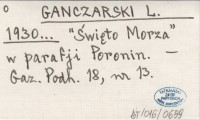 o
GANCZARSKI L.
1930... "Święto Morza"
w parafji Poronin. —
Gaz. Podh. 18, nr 13.
bT/016/0639